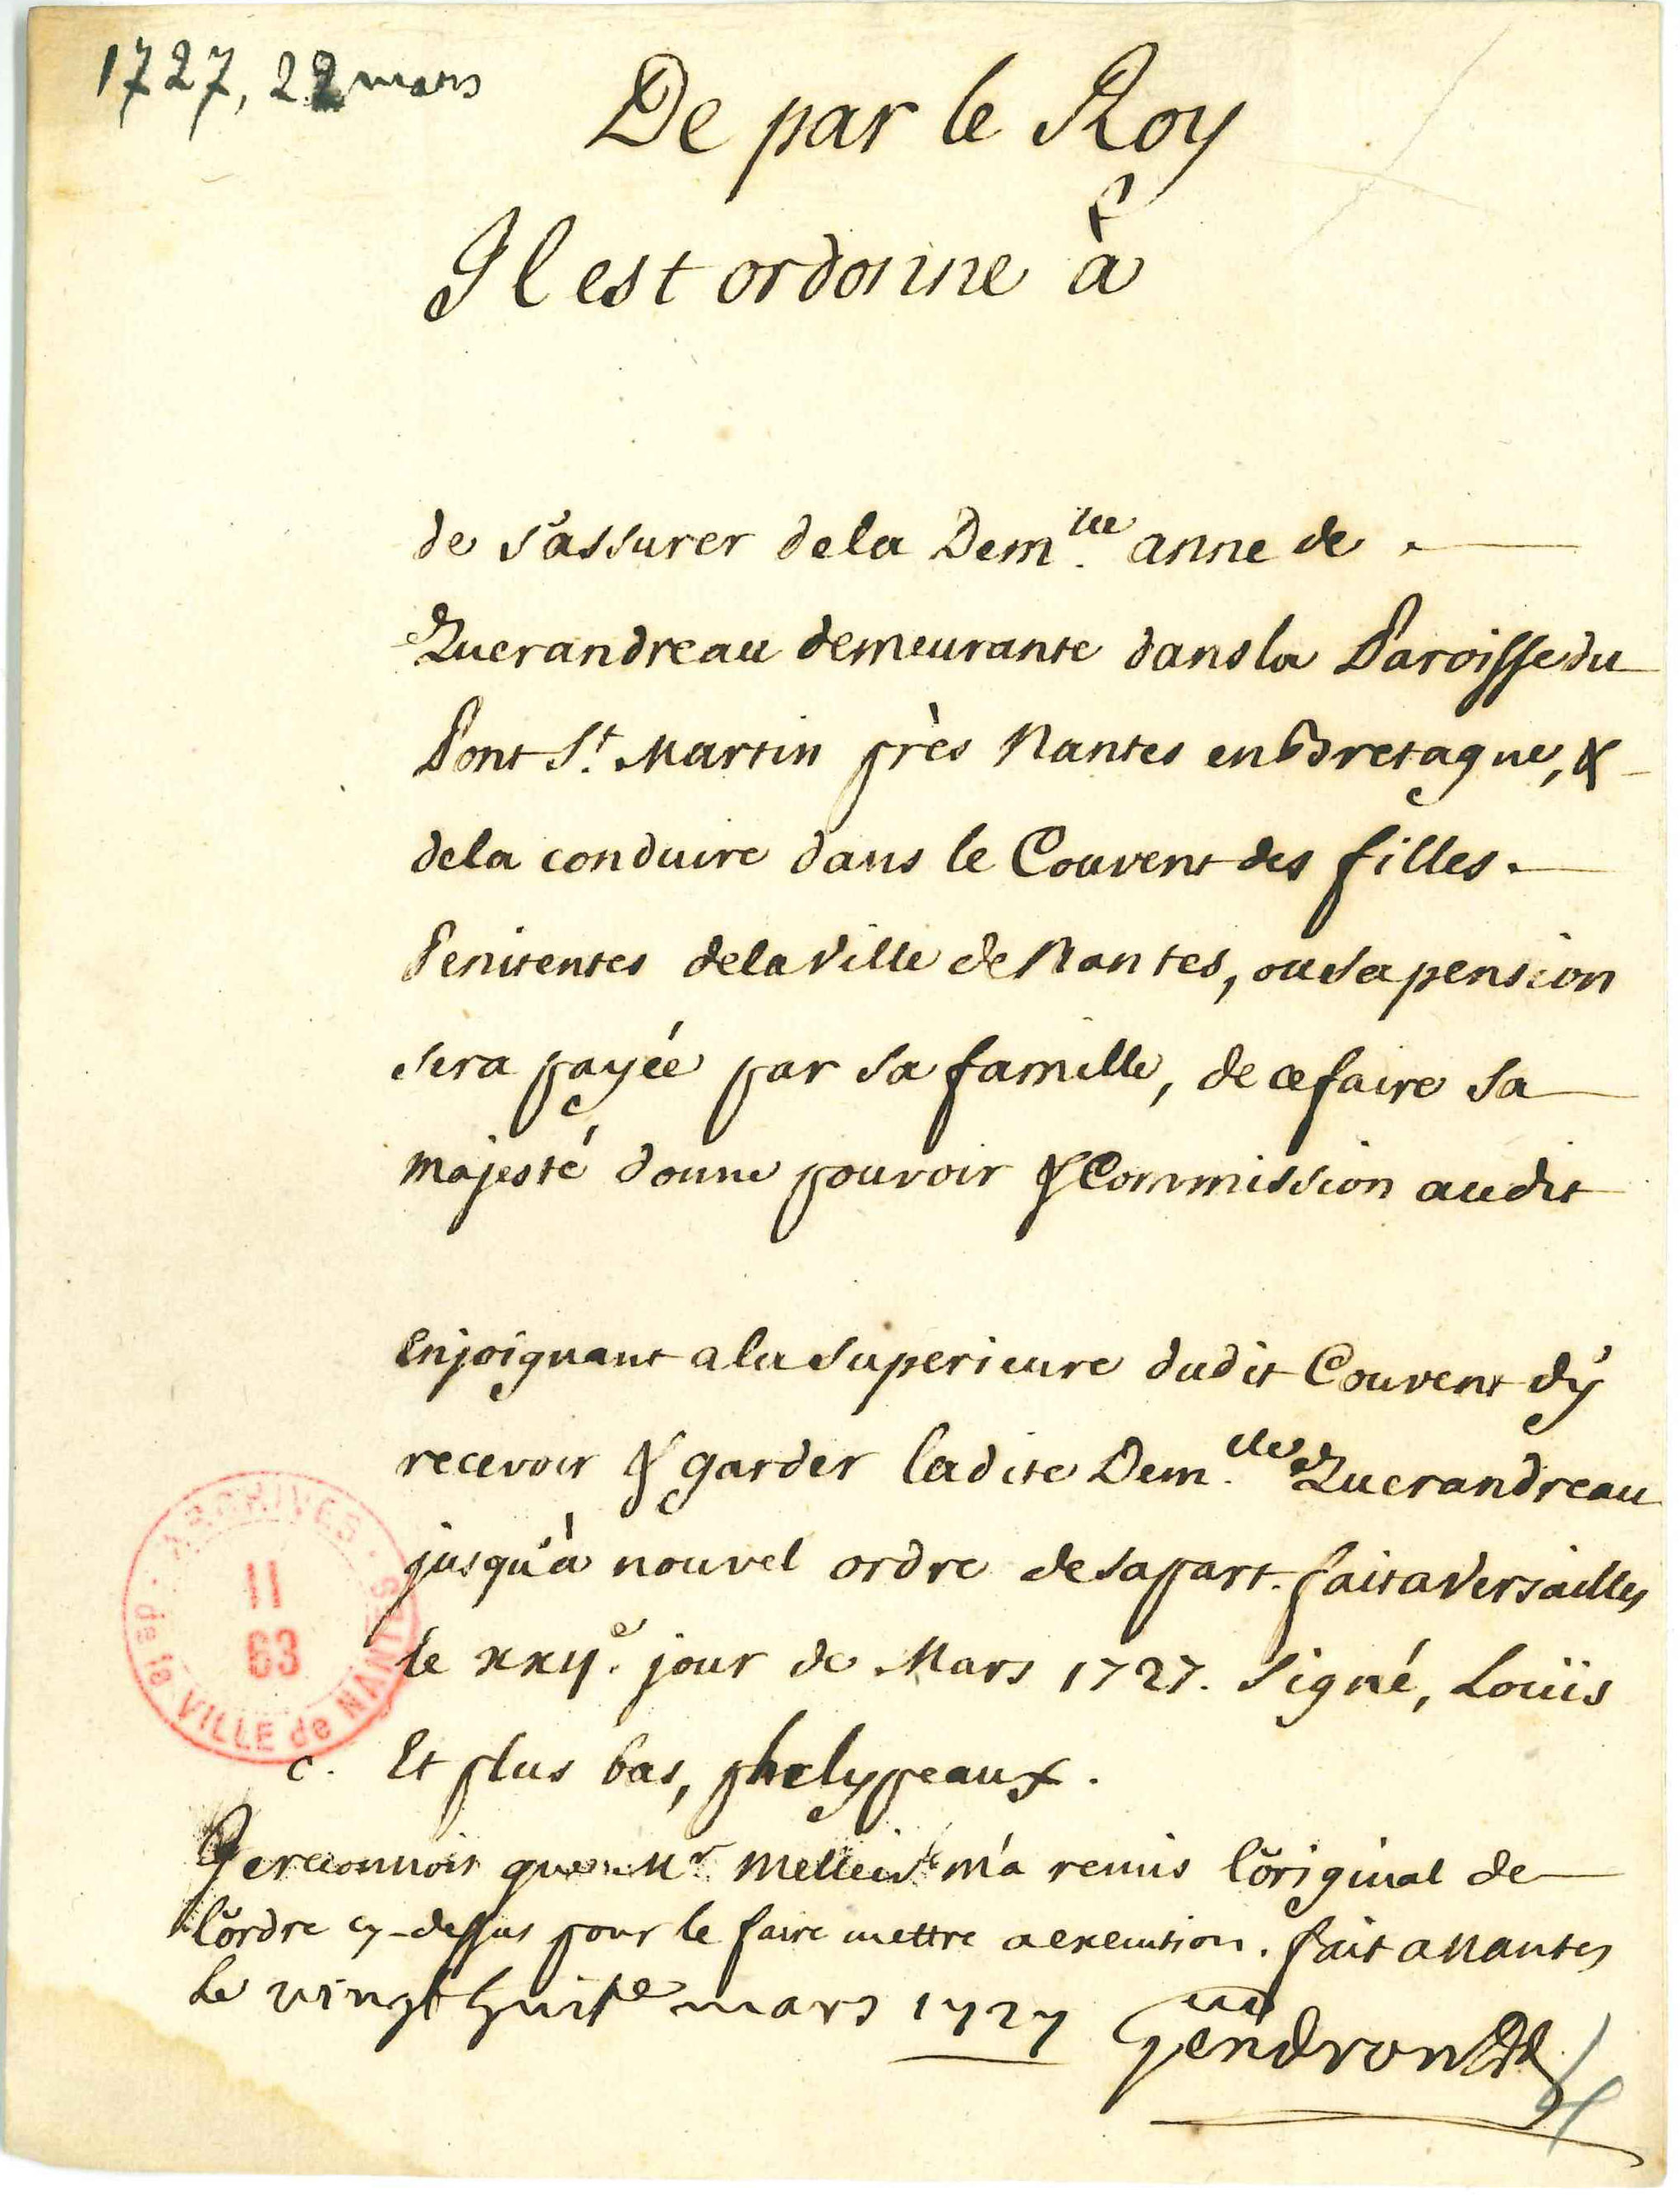 1727, 22 mars
De par le Roy
Il est ordonne à
de s'assurer dela Dem.lle anne de
Querandreau demeurante dans la Paroisse du
Pont St. Martin près Nantes en Bretagne, &
dela conduire dans le Couvent des filles
Penitentes dela Ville de Nantes, ou sa pension
sera payée par sa famille, de ce faire sa
majesté donne pouvoir & Commission audit
Enjoignant a la Superieure dudit Couvent d'y
recevoir & garder ladite Dem.lle Querandreau
jusqu'à nouvel ordre de sa part. fait a Versailles
le xxije. jour de Mars 1727. Signé, Loüis
c. Et plus bas, phelypeaux.
Je reconnois que Mr Mellier m'a remis l'original de
l'ordre cy-dessus pour le faire mettre a execution. fait a Nantes
le vingt huite mars 1727 Gendron
ARCHIVES de la VILLE de NANTES
II
63